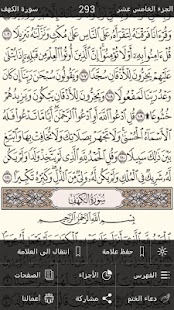 الجزء الخامس عشر 293 سورة الكهف
وَبِٱلْحَقِّ أَنزَلْنَٰهُ وَبِٱلْحَقِّ نَزَلَ وَمَآ أَرْسَلْنَٰكَ إِلَّا مُبَشِّرًا وَنَذِيرًا ١٠٥
وَقُرْءَانًا فَرَقْنَٰهُ لِتَقْرَأَهُۥ عَلَى ٱلنَّاسِ عَلَىٰ مُكْثٍ وَنَزَّلْنَٰهُ تَنزِيلًا ١٠٦
قُلْ ءَامِنُوا۟ بِهِۦٓ أَوْ لَا تُؤْمِنُوٓا۟ إِنَّ ٱلَّذِينَ أُوتُوا۟ ٱلْعِلْمَ مِن قَبْلِهِۦٓ
إِذَا يُتْلَىٰ عَلَيْهِمْ يَخِرُّونَ لِلْأَذْقَانِ سُجَّدًا ١٠٧ وَيَقُولُونَ سُبْحَٰنَ رَبِّنَآ
إِن كَانَ وَعْدُ رَبِّنَا لَمَفْعُولًا ١٠٨ وَيَخِرُّونَ لِلْأَذْقَانِ يَبْكُونَ
وَيَزِيدُهُمْ خُشُوعًا ١٠٩ قُلِ ٱدْعُوا۟ ٱللَّهَ أَوِ ٱدْعُوا۟ ٱلرَّحْمَٰنَ أَيًّا مَّا
تَدْعُوا۟ فَلَهُ ٱلْأَسْمَآءُ ٱلْحُسْنَىٰ وَلَا تَجْهَرْ بِصَلَاتِكَ وَلَا تُخَافِتْ بِهَا
وَٱبْتَغِ بَيْنَ ذَٰلِكَ سَبِيلًا ١١٠ وَقُلِ ٱلْحَمْدُ لِلَّهِ ٱلَّذِى لَمْ يَتَّخِذْ وَلَدًا
وَلَمْ يَكُن لَّهُۥ شَرِيكٌ فِى ٱلْمُلْكِ وَلَمْ يَكُن لَّهُۥ وَلِىٌّ مِّنَ ٱلذُّلِّ وَكَبِّرْهُ تَكْبِيرًۢا ١١١
سُورَةُ الكَهْفِ
بِسْمِ ٱللَّهِ ٱلرَّحْمَٰنِ ٱلرَّحِيمِ
حفظ علامة انتقال الى العلامة
الفهرس الأجزاء الصفحات
دعاء الختم مشاركة أعمالنا